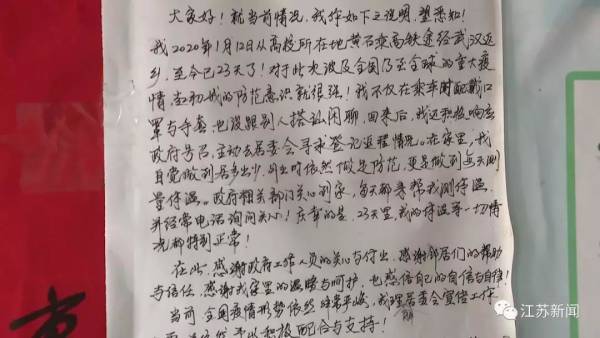 大家好！就当前情况，我作如下之说明，望悉知！
我2020年1月12从高校所在地黄石乘高铁途经武汉返
乡，至今已23天了！对于此次波及全国乃至全球的重大疫
情，当初我的防范意识就很强！我不仅在乘车时配戴口
罩与手套，也没跟别人搭讪闲聊，回来后，我还积极响应
政府号召，主动去居委会寻求登记返程情况。在家里，我
自觉做到居多出少，外出时依然做足防范，更是做到每天测
量体温。政府相关部门关心到家，每天都来帮我测体温，
并经常电话询问关心！庆幸的是，23天里，我的体温等一切情
况都特别正常！
在此，感谢政府工作人员的关心与付出，感谢邻居们的帮助
与信任，感谢我家里的温暖与呵护，也感信自己的自信与自律！
当前，全国疫情形势依然非常严峻，我理居委会宣传工作
积极配合与支持！
江苏新闻